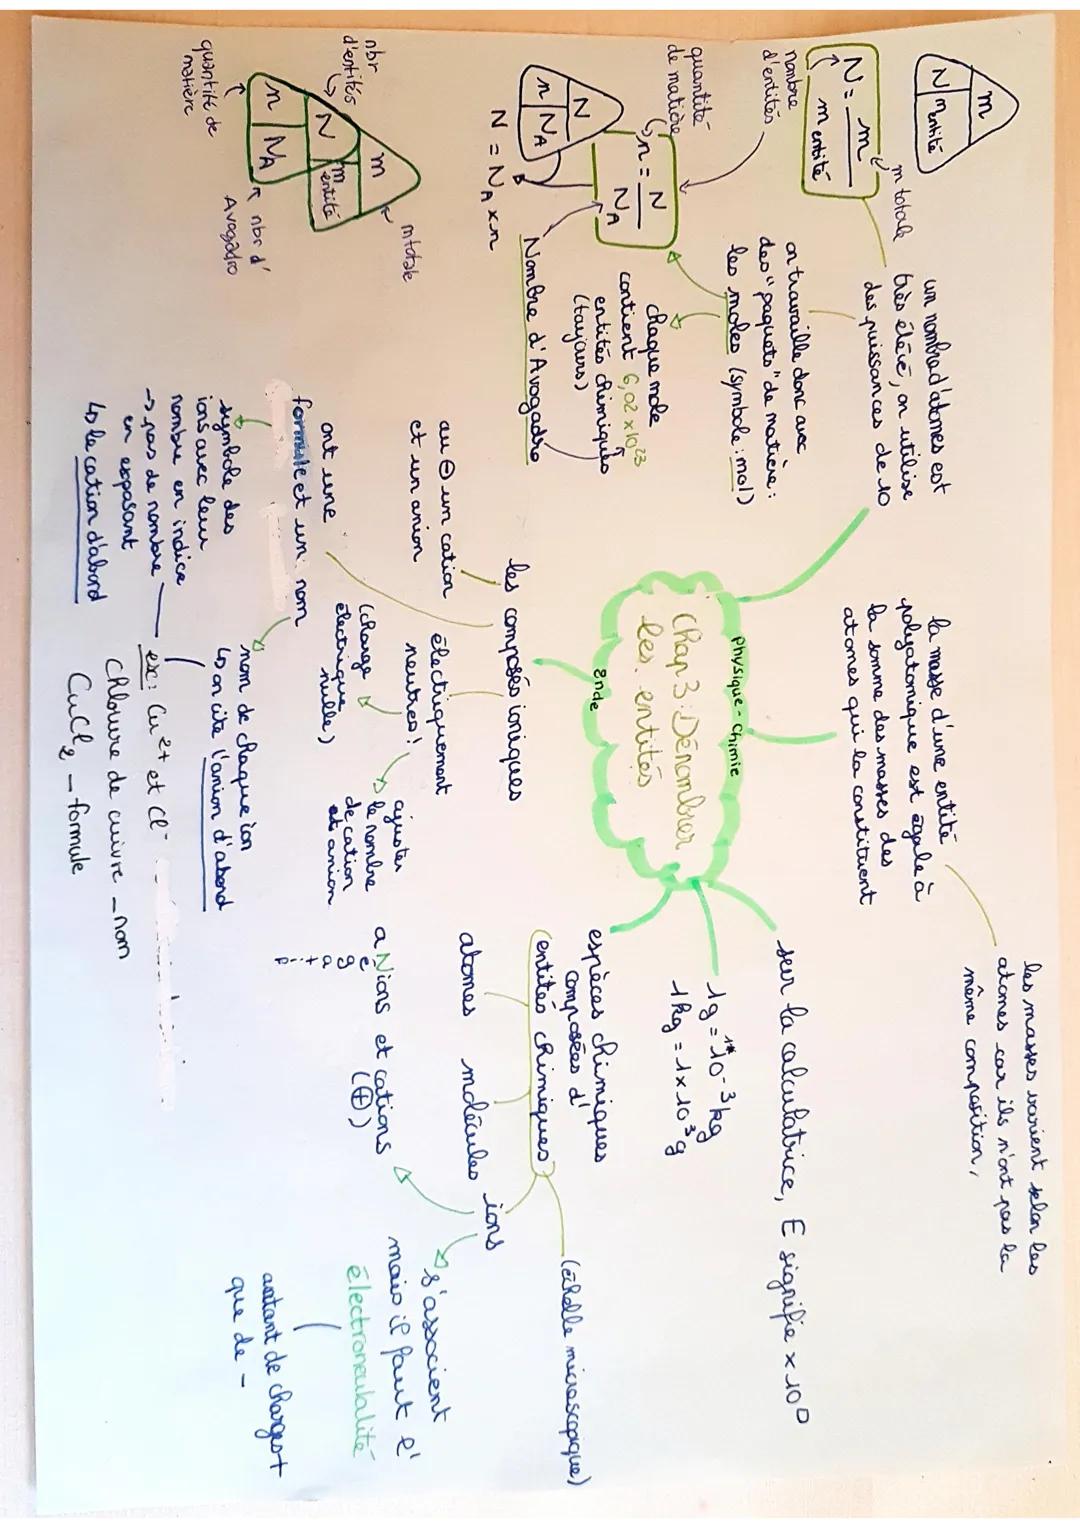 Physique-Chimie
Chap 3: Dénombrer
les entités
2nde
m
N
m entité
N = m / m entité
m totale
nombre
d'entités
un nombre d'atomes est
très élévé, on utilise
des puissances de 10
on travaille donc avec
des "paquets" de matière:
les moles (symbole: mol)
quantité
de matière
n = N / NA
N
n
NA
N = NA x n
chaque mole
contient 6,02 x 10²³
entités chimiques
(toujours)
Nombre d'Avogadro
m
N
m entité
n
NA
m totale
nbr
d'entités
quantité de
matière
nbr d'
Avogadro
la masse d'une entité
polyatomique est égale à
la somme des masses des
atomes qui la constituent
les masses varient selon les
atomes car ils n'ont pas la
même composition,
sur la calculatrice, E signifie x 10^□
1g = 1*10⁻³ kg
1kg = 1 x 10³ g
espèces chimiques
composées d'
(entités chimiques)
(échelle microscopique)
atomes
molécules
ions
aNions et cations
é
g
a
t
i
f
(⊕)
s'associent
mais il faut l'
électroneutralité
autant de charges +
que de -
les composés ioniques
au ⊖ un cation
et un anion
électriquement
neutres!
(charge
électrique
nulle)
ajuster
le nombre
de cation
et anion
ont une
formule et un nom
symbole des
ions avec leur
nombre en indice
→ pas de nombre
en exposant
↳ le cation d'abord
nom de chaque ion
↳ on cite l'anion d'abord
ex: Cu²⁺ et Cl⁻
Chlorure de cuivre - nom
CuCl₂ - formule